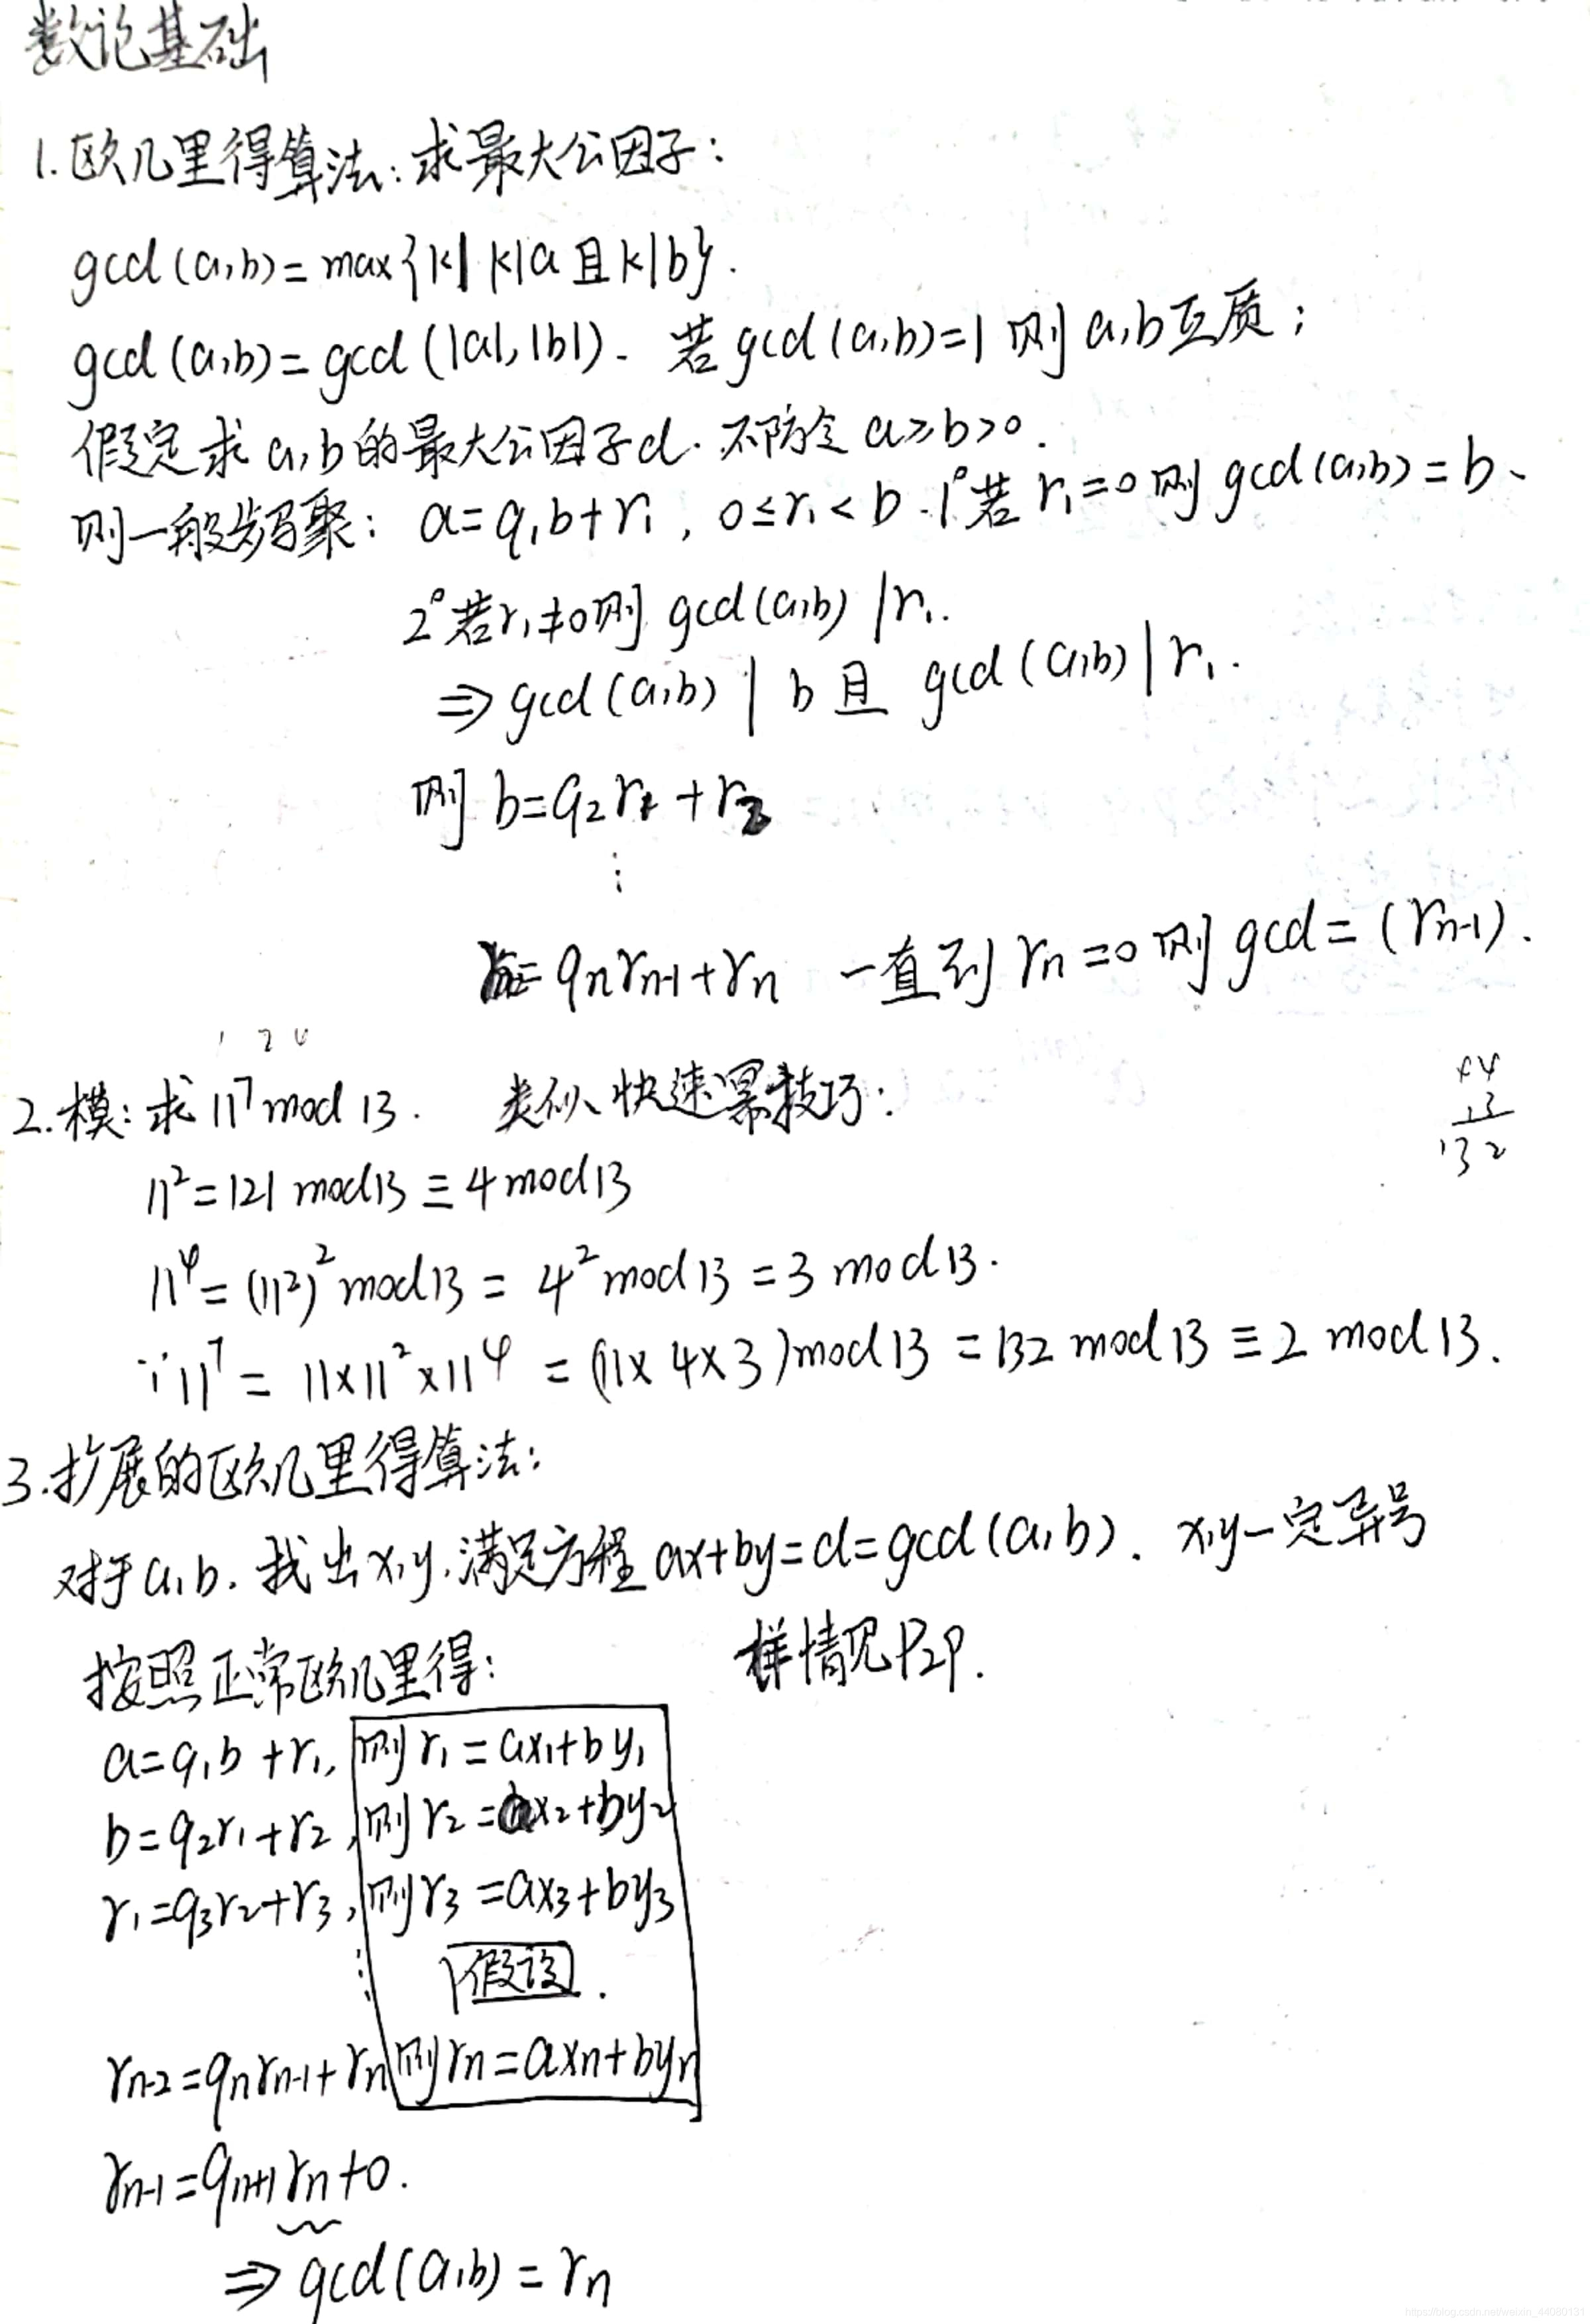 数论基础
1.欧几里得算法:求最大公因子:
gcd(a,b)=max{k| k|a且k|b}.
gcd(a,b)=gcd(|a|,|b|). 若gcd(a,b)=1 则a,b互质;
假定求a,b的最大公因子d.不防令a≥b>0.
则一般步骤: a=q₁b+r₁, 0≤r₁<b.1°若r₁=0则gcd(a,b)=b、
2°若r₁≠0则gcd(a,b)|r₁.
⇒gcd(a,b)|b且 gcd(a,b)|r₁.
则b=q₂r₁+r₂
⋮
= qₙrₙ₋₁+rₙ 一直到rₙ=0则gcd=(rₙ₋₁).
1 2 4
2.模:求11⁷mod 13. 类似快速幂技巧:
44
13
132
11²=121 mod13≡4mod13
11⁴=(11²)²mod13=4²mod13=3 mod13.
∵11⁷=11×11²×11⁴=(11×4×3)mod13=132 mod13≡2 mod13.
3.扩展的欧几里得算法:
对于a,b.找出x,y,满足方程ax+by=d=gcd(a,b). x,y一定异号
按照正常欧几里得: 样情见P29.
a=q₁b+r₁, 则r₁=ax₁+by₁
b=q₂r₁+r₂, 则r₂=ax₂+by₂
r₁=q₃r₂+r₃, 则r₃=ax₃+by₃
⋮ 假设.
rₙ₋₂=qₙrₙ₋₁+rₙ 则rₙ=axₙ+byₙ
rₙ₋₁=qₙ₊₁rₙ+0.
⇒gcd(a,b)=rₙ